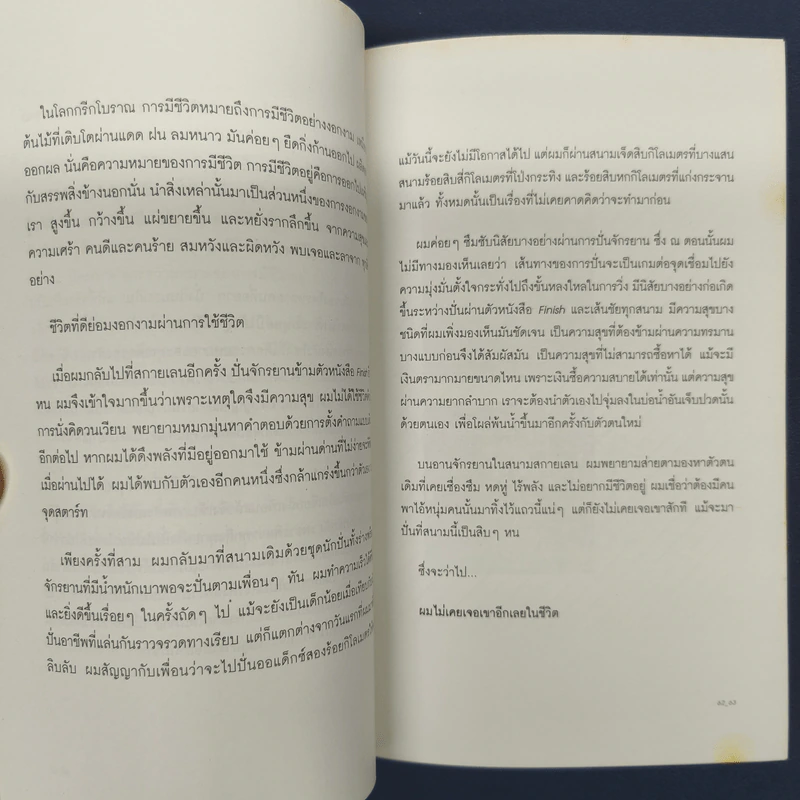 ในโลกกรีกโบราณ การมีชีวิตหมายถึงการมีชีวิตอย่างงอกงาม
ต้นไม้ที่เติบโตผ่านแดด ฝน ลมหนาว มันค่อยๆ ยืดกิ่งก้านออกไป
ออกผล นั่นคือความหมายของการมีชีวิต การมีชีวิตอยู่คือการออกไป
กับสรรพสิ่งข้างนอกนั้น นำสิ่งเหล่านั้นมาเป็นส่วนหนึ่งของการงอกงาม
เรา สูงขึ้น กว้างขึ้น แผ่ขยายขึ้น และหยั่งรากลึกขึ้น จากความสุข
ความเศร้า คนดีและคนร้าย สมหวังและผิดหวัง พบเจอและลาจาก
อย่าง
ชีวิตที่ดีย่อมงอกงามผ่านการใช้ชีวิต
เมื่อผมกลับไปที่สกายเลนอีกครั้ง ปั่นจักรยานข้ามตัวหนังสือ Finish
หน ผมจึงเข้าใจมากขึ้นว่าเพราะเหตุใดจึงมีความสุข ผมไม่ได้ใช้ชีวิต
การนั่งคิดวนเวียน พยายามหมกมุ่นหาคำตอบด้วยการตั้งคำถามแบบ
อีกต่อไป หากผมได้ดึงพลังที่มีอยู่ออกมาใช้ ข้ามผ่านด่านที่ไม่ง่าย
เมื่อผ่านไปได้ ผมได้พบกับตัวเองอีกคนหนึ่งซึ่งกล้าแกร่งขึ้นกว่า
จุดสตาร์ท
เพียงครั้งที่สาม ผมกลับมาที่สนามเดิมด้วยชุดนักปั่นทั้งร่าง
จักรยานที่มีน้ำหนักเบาพอจะปั่นตามเพื่อนๆ ทัน ผมทำความเร็วได้
และยิ่งดีขึ้นเรื่อยๆ ในครั้งถัดๆ ไป แม้จะยังเป็นเด็กน้อยเมื่อเทียบ
ปั่นอาชีพที่แล่นกันราวจรวดทางเรียบ แต่ก็แตกต่างจากวันแรกที่
ลิบลับ ผมสัญญากับเพื่อนว่าจะไปปั่นออแด็กซ์สองร้อยกิโลเมตร
แม้วันนี้จะยังไม่มีโอกาสได้ไป แต่ผมก็ผ่านสนามเจ็ดสิบกิโลเมตรที่บางแสน
สนามร้อยสิบสี่กิโลเมตรที่โป่งกระทิง และร้อยสิบหกกิโลเมตรที่แก่งกระจาน
มาแล้ว ทั้งหมดนั้นเป็นเรื่องที่ไม่เคยคาดคิดว่าจะทำมาก่อน
ผมค่อยๆ ซึมซับนิสัยบางอย่างผ่านการปั่นจักรยาน ซึ่ง ณ ตอนนั้นผม
ไม่มีทางมองเห็นเลยว่า เส้นทางของการปั่นจะเป็นเกมต่อจุดเชื่อมไปยัง
ความมุ่งมั่นตั้งใจกระทั่งไปถึงขั้นหลงใหลในการวิ่ง มีนิสัยบางอย่างก่อเกิด
ขึ้นระหว่างปั่นผ่านตัวหนังสือ Finish และเส้นชัยทุกสนาม มีความสุขบาง
ชนิดที่ผมเพิ่งมองเห็นมันชัดเจน เป็นความสุขที่ต้องข้ามผ่านความทรมาน
บางแบบก่อนจึงได้สัมผัสมัน เป็นความสุขที่ไม่สามารถซื้อหาได้ แม้จะมี
เงินตรามากมายขนาดไหน เพราะเงินซื้อความสบายได้เท่านั้น แต่ความสุข
ผ่านความยากลำบาก เราจะต้องนำตัวเองไปจุ่มลงในบ่อน้ำอันเจ็บปวดนั้น
ด้วยตนเอง เพื่อโผล่พ้นน้ำขึ้นมาอีกครั้งกับตัวตนใหม่
บนอานจักรยานในสนามสกายเลน ผมพยายามส่ายตามองหาตัวตน
เดิมที่เคยเชื่องซึม หดหู่ ไร้พลัง และไม่อยากมีชีวิตอยู่ ผมเชื่อว่าต้องมีคน
พาไอ้หนุ่มคนนั้นมาทิ้งไว้แถวนี้แน่ๆ แต่ก็ยังไม่เคยเจอเขาสักที แม้จะมา
ปั่นที่สนามนี้เป็นสิบๆ หน
ซึ่งจะว่าไป...
ผมไม่เคยเจอเขาอีกเลยในชีวิต